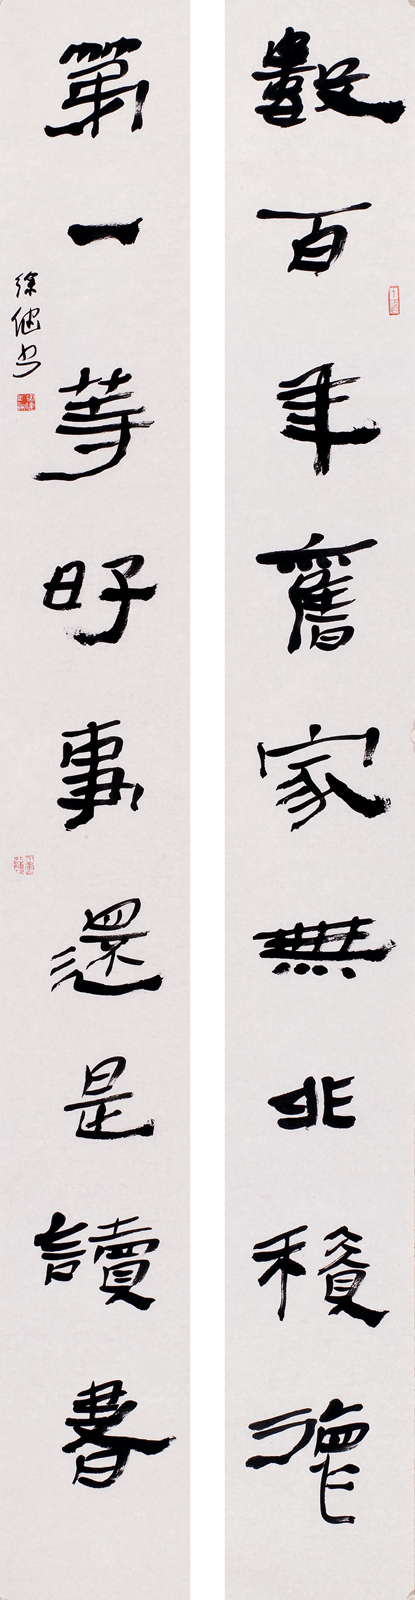 數百年舊家無非積德
第一等好事還是讀書
徐健书